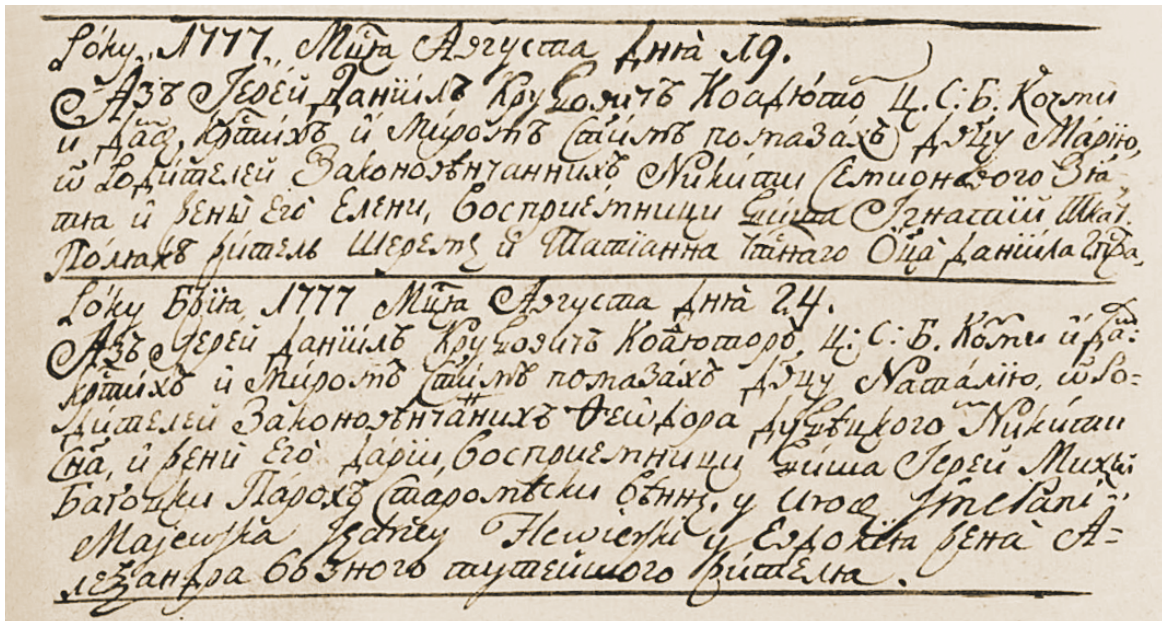 Року, 1777, Мцѧ Августа Днѧ 19.
Азъ Іерей Данїилъ Крушовичъ Коадюто Ц. С: Б. Козми
и Дам, крстихъ и Мѵромъ стымъ помазахъ Дѣцу Марїю,
ѿ Родителей Законовѣнчаннихъ Никити Семионового Зя-
тя и жени Его Елени, Восприемници биша Ігнатїй
Полюхъ житель Шереме и Татїанна Данїила
Року Бжїя, 1777 Мцѧ Августа Днѧ 24.
Азъ Іерей Данїилъ Крушовичъ Коадюторъ Ц: С: Б. Козми и Да:
крстихъ и Мѵромъ стымъ помазахъ Дѣцу Наталїю, ѿ Ро-
дителей Законовѣнчанихъ Ѳеѡдора Никити
Сна, и жени Его Дарїи, Восприемници биша Іерей Михаи
Парохъ Старомѣски у Imć Pani
Majewska и Евдокїя жена А-
леѯандра возного тутейшого жителя.